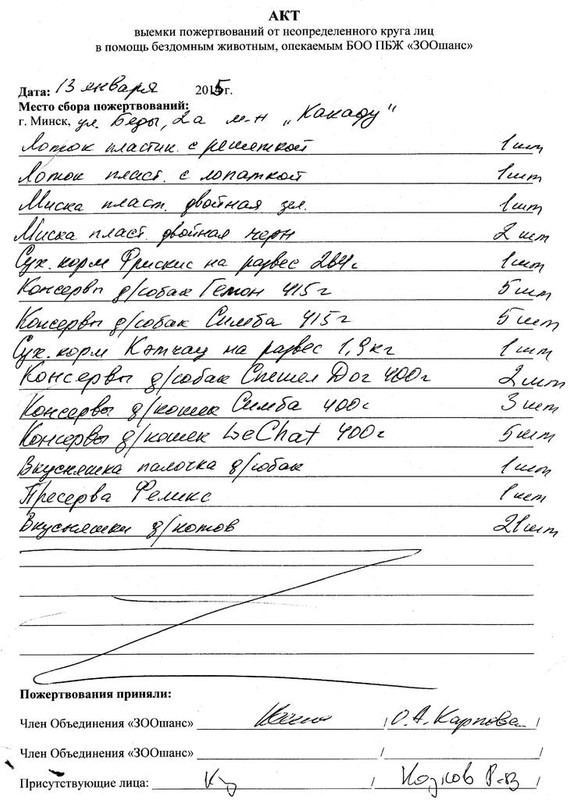 АКТ
выемки пожертвований от неопределенного круга лиц
в помощь бездомным животным, опекаемым БОО ПБЖ «ЗООшанс»
Дата: 13 января 2015г.
Место сбора пожертвований:
г. Минск, ул. Беды, 2а м-н "Какаду"
Лоток пластик. с решеткой 1шт
Лоток пласт. с лопаткой 1шт
Миска пласт. двойная зел. 1шт
Миска пласт. двойная черн 2 шт
Сух. корм Фрискис на развес 1шт
Консервы д/собак Гемон 415г 5шт
Консервы д/собак Симба 415г 5шт
Сух. корм Кэтчау на развес 1,9кг 1шт
Консервы д/собак Спешел Дог 400г 2шт
Консервы д/кошек Симба 400г 3шт
Консервы д/кошек LeChat 400г 5шт
Вкусняшка палочка д/собак 1шт
Пресерва Феликс 1шт
Вкусняшки д/котов 21шт
Пожертвования приняли:
Член Объединения «ЗООшанс» / О.А. Карпова /
Член Объединения «ЗООшанс» / /
Присутствующие лица: / /